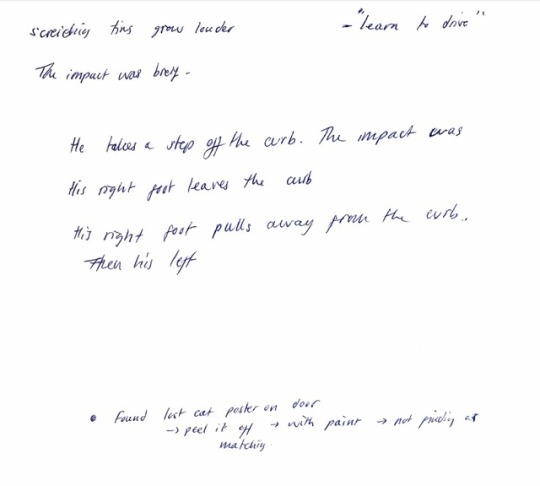 screiching tires grow louder
- "learn to drive"
The impact was brief.
He takes a step off the curb. The impact was
His right foot leaves the curb
His right foot pulls away from the curb.
Then his left
• Found lost cat poster on door
→ peel it off → with paint → not as
matching.